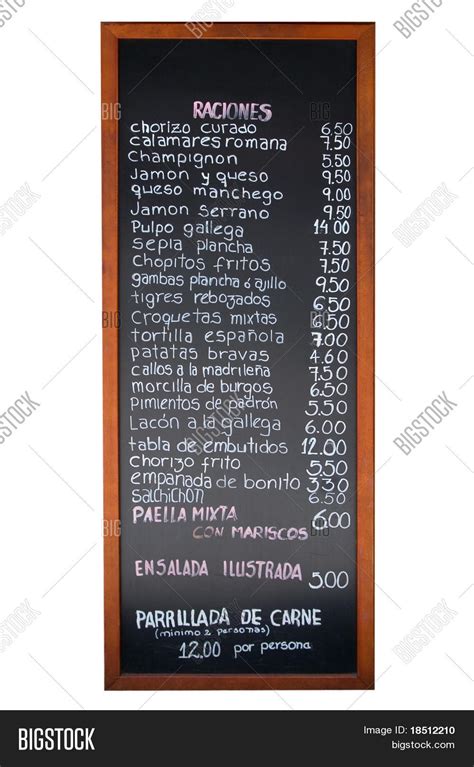 RACIONES
chorizo curado 6.50
calamares romana 7.50
Champignon 5.50
Jamon y queso 9.50
queso manchego 9.00
Jamon serrano 9.50
Pulpo gallega 14.00
sepia plancha 7.50
Chopitos fritos 7.50
gambas plancha ó ajillo 9.50
tigres rebozados 6.50
Croquetas mixtas 6.50
tortilla española 7.00
patatas bravas 4.60
callos a la madrileña 7.50
morcilla de burgos 6.50
Pimientos de padrón 5.50
Lacón a la gallega 6.00
tabla de embutidos 12.00
chorizo frito 5.50
empanada de bonito 3.30
salchichon 6.50
PAELLA MIXTA 6.00
CON MARISCOS
ENSALADA ILUSTRADA 5.00
PARRILLADA DE CARNE
(minimo 2 personas)
12.00 por persona
BIGSTOCK
Image ID: 18512210
bigstock.com